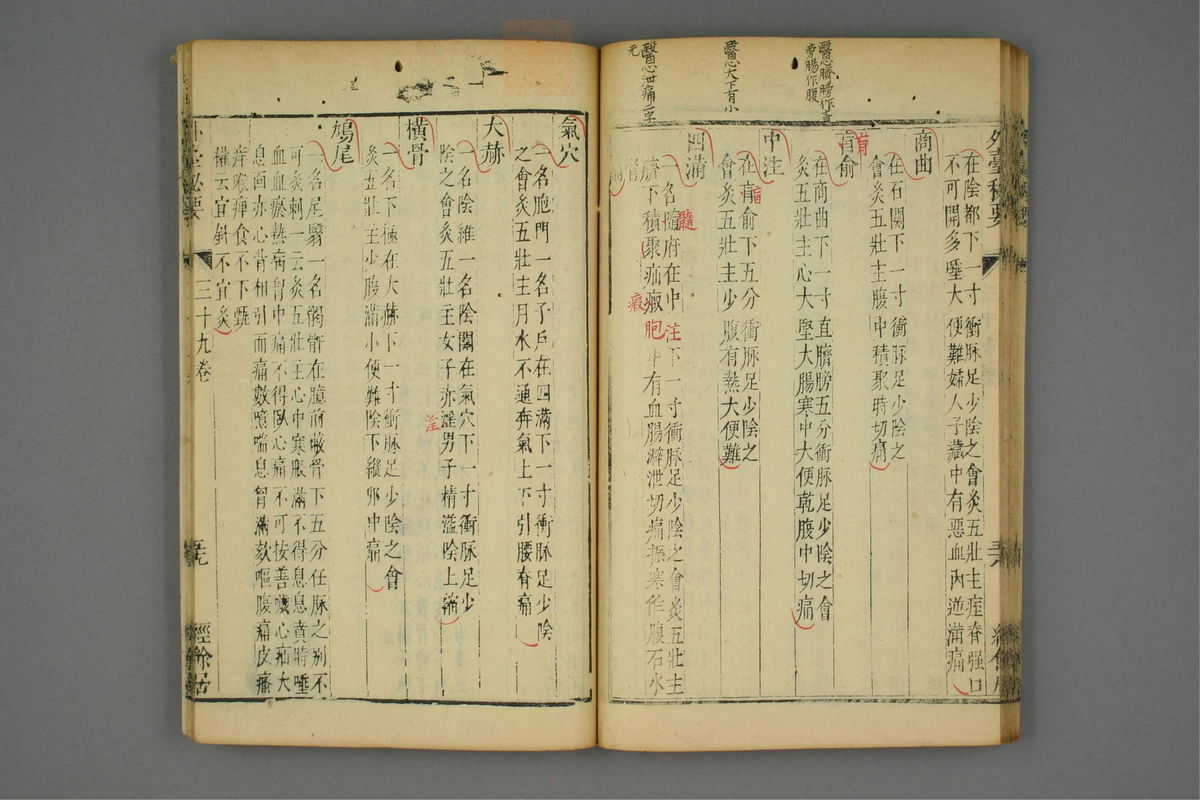 醫心臍膀作直
旁腸作腹
醫心大下有小
醫心泄痛二字
无
外臺秘要
在陰都下一寸衝脉足少陰之會灸五壯主痓脊强口
不可開多唾大便難婦人子藏中有惡血內逆滿痛
商曲
在石關下一寸衝脉足少陰之
會灸五壯主腹中積聚時切痛
肓俞
肓
在商曲下一寸直臍膀五分衝脉足少陰之會
灸五壯主心大堅大腸寒中大便乾腹中切痛
中注
在肓俞下五分衝脉足少陰之
肓
會灸五壯主少腹有熱大便難
四滿
一名隨府在中注下一寸衝脉足少陰之會灸五壯主
髓
臍下積聚疝瘕胞中有血腸澼泄切痛振寒作腹石水
瘕
腎痛
氣穴
一名胞門一名子戶在四滿下一寸衝脉足少陰
之會灸五壯主月水不通奔氣上下引腰脊痛
大赫
一名陰維一名陰關在氣穴下一寸衝脉足少
陰之會灸五壯主女子赤淫男子精溢陰上縮
淫
橫骨
一名下極在大赫下一寸衝脉足少陰之會
灸五壯主少腹滿小便難陰下縱卵中痛
鳩尾
一名尾翳一名𩩲骬在臆前蔽骨下五分任脉之別不
可灸刺一云灸五壯主心中寒脹滿不得息息賁時唾
血血瘀熱病胷中痛不得臥心痛不可按善噦心疝大
息面赤心背相引而痛數噫喘息胷滿欬嘔腹痛皮瘙
痒喉痹食不下甄
權云宜針不宜灸
外臺秘要
三十九卷
經餘居